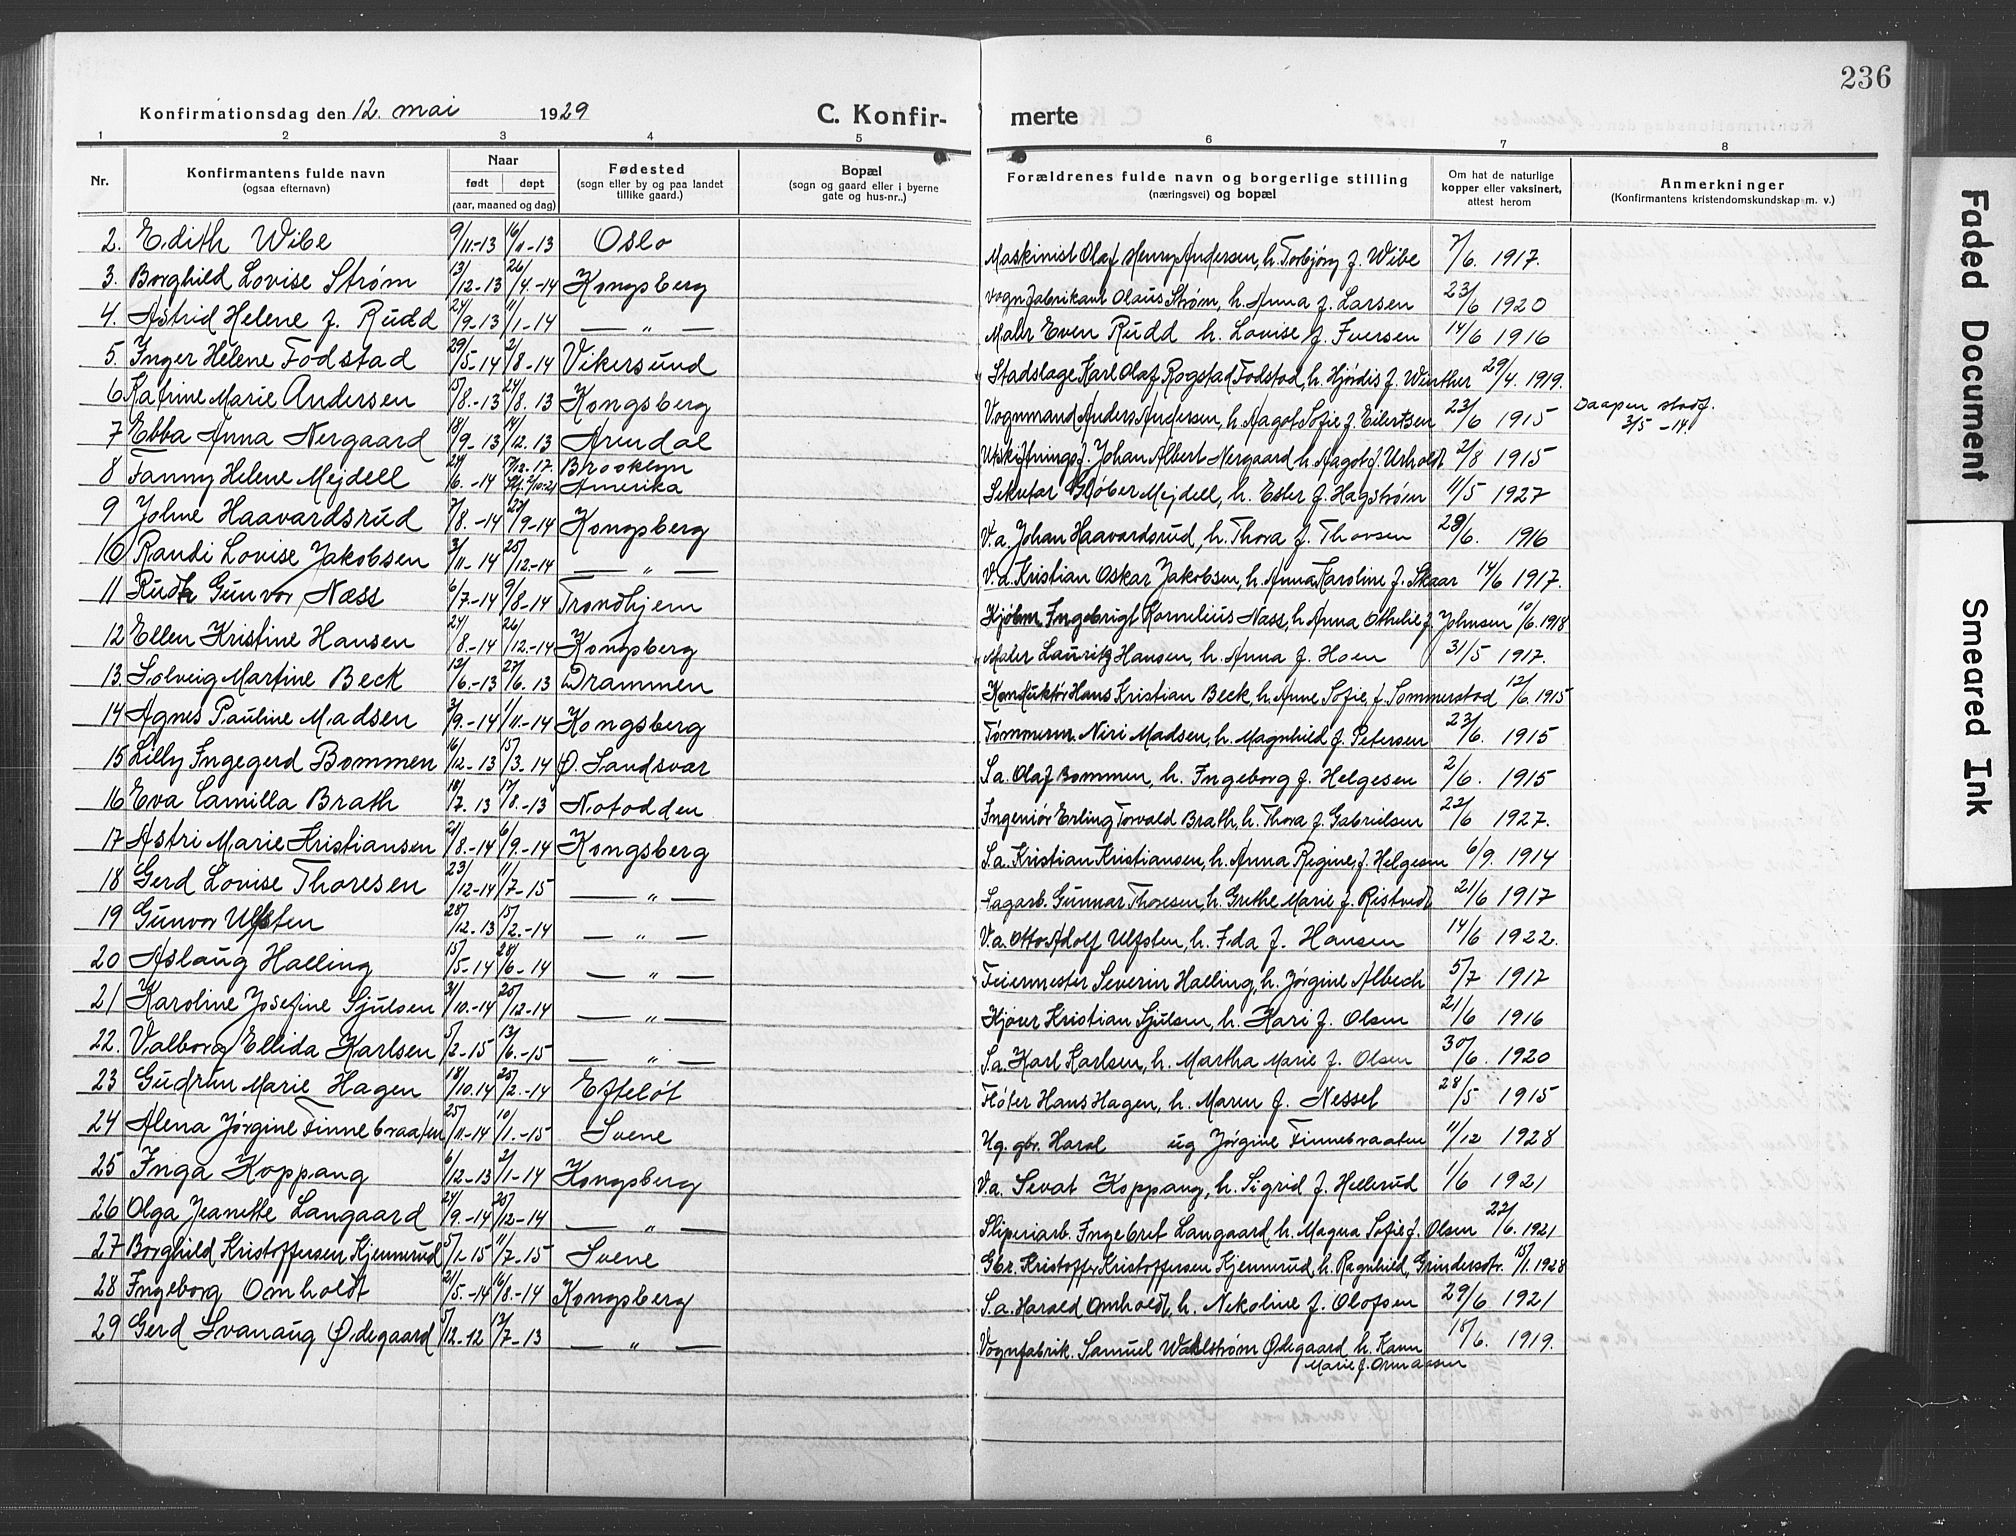 236
Konfirmationsdag den 12. mai 1929 C. Konfir- merte
1 2 3 4 5 6 7 8
Nr. Konfirmantens fulde navn (ogsaa efternavn) Naar født døpt (aar, maaned og dag) Fødested (sogn eller by og paa landet tillike gaard.) Bopæl (sogn og gaard eller i byerne gate og hus-nr..) Forældrenes fulde navn og borgerlige stilling (næringsvei) og bopæl Om hat de naturlige kopper eller vaksinert, attest herom Anmerkninger (Konfirmantens kristendomskundskap m. v.)
2. Edith Wibe 9/11-13 16/11-13 Oslo Maskinist Olaf Henry Andersen, h. Torbjørg f. Wibe 7/6. 1917.
3. Borghild Lovise Strøm 13/12-13 26/4.-14 Kongsberg Vognfabrikant Olaus Strøm, h. Anna f. Larsen 23/6 1920
4. Astrid Helene f. Rudd 24/9-13 11/1-14 — " — Maler Even Rudd h. Lovise f. Iversen 14/6 1916
5. Inger Helene Fodstad 29/5-14 2/8-14 Vikersund Stadslæge Karl Olaf Rogstad Fodstad, h. Hjórdis f. Winther 29/4. 1919.
6 Katrine Marie Andersen 15/8.-13 24/8. 13 Kongsberg Vognmand Anders Andersen, h. Aagot Sofie f. Eilertsen 23/6 1915 Daapen stadf. 3/5 -14.
7 Ebba Anna Nergaard 18/9. 13 14/12. 13 Arendal Utskiftningsf. Johan Albert Nergaard h. Aagot f. Urholdt 2/8 1915
8 Fanny Helene Mejdell 24/6. -14 Brooklyn Amerika Sekretær Gløber Mejdell, h. Ester f. Hagstrøm 11/5 1927
9 Johne Haavardsrud 7/8. -14 27/9-14 Kongsberg V.a. Johan Haavardsrud, h. Thora f. Thovsen 28/6. 1916
10 Randi Lovise Jakobsen 3/11-14 25/12-14 — " — V.a. Kristian Oskar Jakobsen, h. Anna Karoline f. Skaar 14/6 1917.
11 Ruth Gunvor Næss 6/7-14 9/8-14 Trondhjem Kjøbm. Ingebrigt Kornelius Næss, h. Anna Othelie f. Johnsen 10/6. 1918
12 Ellen Kristine Hansen 24/8.-14 26/12-14 Kongsberg Maler Lauritz Hansen, h. Anna f. Hoen 31/5 1917.
13. Solveig Martine Beck 12/6.-13 27/6. 13 Drammen Konduktør Hans Kristian Beck, h. Anne Sofie f. Sommerstad 12/6. 1915
14 Agnes Pauline Madsen 3/9.-14 1/11.-14 Kongsberg Tømmerm. Niri Madsen, h. Magnhild f. Petersen 23/6. 1915
15 Lilly Ingegerd Bommen 16/12-13 15/3. 14 Ø. Sandsvær S.a. Olaf Bommen, h. Ingeborg f. Helgesen 2/6. 1915
16 Eva Camilla Brath 18/7. 13 17/8.-13 Notodden Ingeniør Erling Torvald Brath, h. Thora f. Gabrielsen 22/6 1927.
17 Astri Marie Kristiansen 21/8.-14 6/9.-14 Kongsberg S.a. Kristian Kristiansen, h. Anna Regine f. Helgesen 6/9. 1914
18 Gerd Lovise Thoresen 23/12-14 11/7-15 — " — Sagarb. Gunnar Thoresen, h. Grethe Marie f. Ristvedt 21/6 1917
19 Gunvor Ulfsten 28/12.13 15/2.-14 — " — V.a. Otto Adolf Ulfsten, h. Ida f. Hansen 14/6 1922.
20 Aslaug Halling 15/5-14 28/6-14 — " — Feiermester Severin Halling, h. Jørgine Albech 5/7 1917
21 Karoline Josefine Sjulsen 3/10.-14 25/12-14 — " — Kjører Kristian Sjulsen, h. Kari f. Olsen 21/6 1916
22. Valborg Ellida Karlsen 5/2-15 13/6.-15 — " — S.a. Karl Karlsen, h. Martha Marie f. Olsen 30/6. 1920
23 Gudrun Marie Hagen 18/10.14 25/2.-14 Efteløt Fløter Hans Hagen, h. Maren f. Nessel 28/5 1915
24 Alena Jørgine Finnebraaten 25/11-14 10/1.-15 Svene Ug. gbr. Haral ug Jørgine Finnebraaten 11/12 1928
25 Inga Koppang 6/12-13 2/1-14 Kongsberg V.a. Sevat Koppang, h. Sigrid f. Hellerud 1/6 1921
26 Olga Jeanette Langaard 24/9.-14 20/12-14 — " — Sliperiarb. Ingebret Langaard h. Magna Sofie f. Olsen 22/6. 1921
27 Borghild Kristoffersen Kjennerud 5/1-15 11/7-15 Svene Gbr. Kristoffer Kristoffersen Kjennerud, h. Ragnhild, Grindersdtr. 15/1. 1928
28 Ingeborg Omholdt 21/5.-14 16/8-14 Kongsberg S.a. Harald Omholdt, h. Nikoline f. Olofsen 29/6 1921
29 Gerd Svanaug Ødegaard 5/12-12 12/7-13 — " — Vognfabrik. Samuel Wahlstrøm Ødegaard h. Karen Marie f. Ormaasen 15/6. 1919.
Faded Document
Smeared Ink